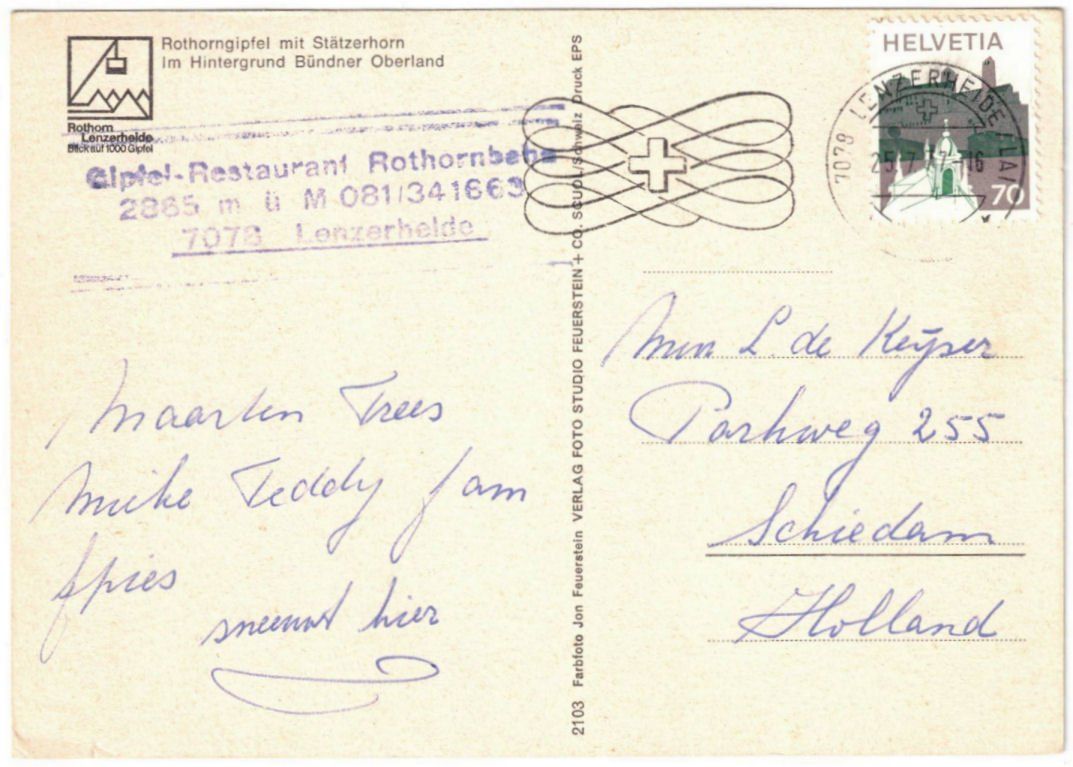 Rothorngipfel mit Stätzerhorn
Im Hintergrund Bündner Oberland
Rothorn
Lenzerheide
Blick auf 1000 Gipfel
Gipfel-Restaurant Rothornbahn
2865 m ü M 081/341663
7078 Lenzerheide
HELVETIA
70
7078 LENZERHEIDE/LAI
25.7.
16
2103 Farbfoto Jon Feuerstein VERLAG FOTO STUDIO FEUERSTEIN + CO. SCUOL/Schweiz Druck EPS
Maarten Trees
Mieke Teddy fam
Spies
sneeuwt hier
L. de Keyser
Parkweg 255
Schiedam
Holland